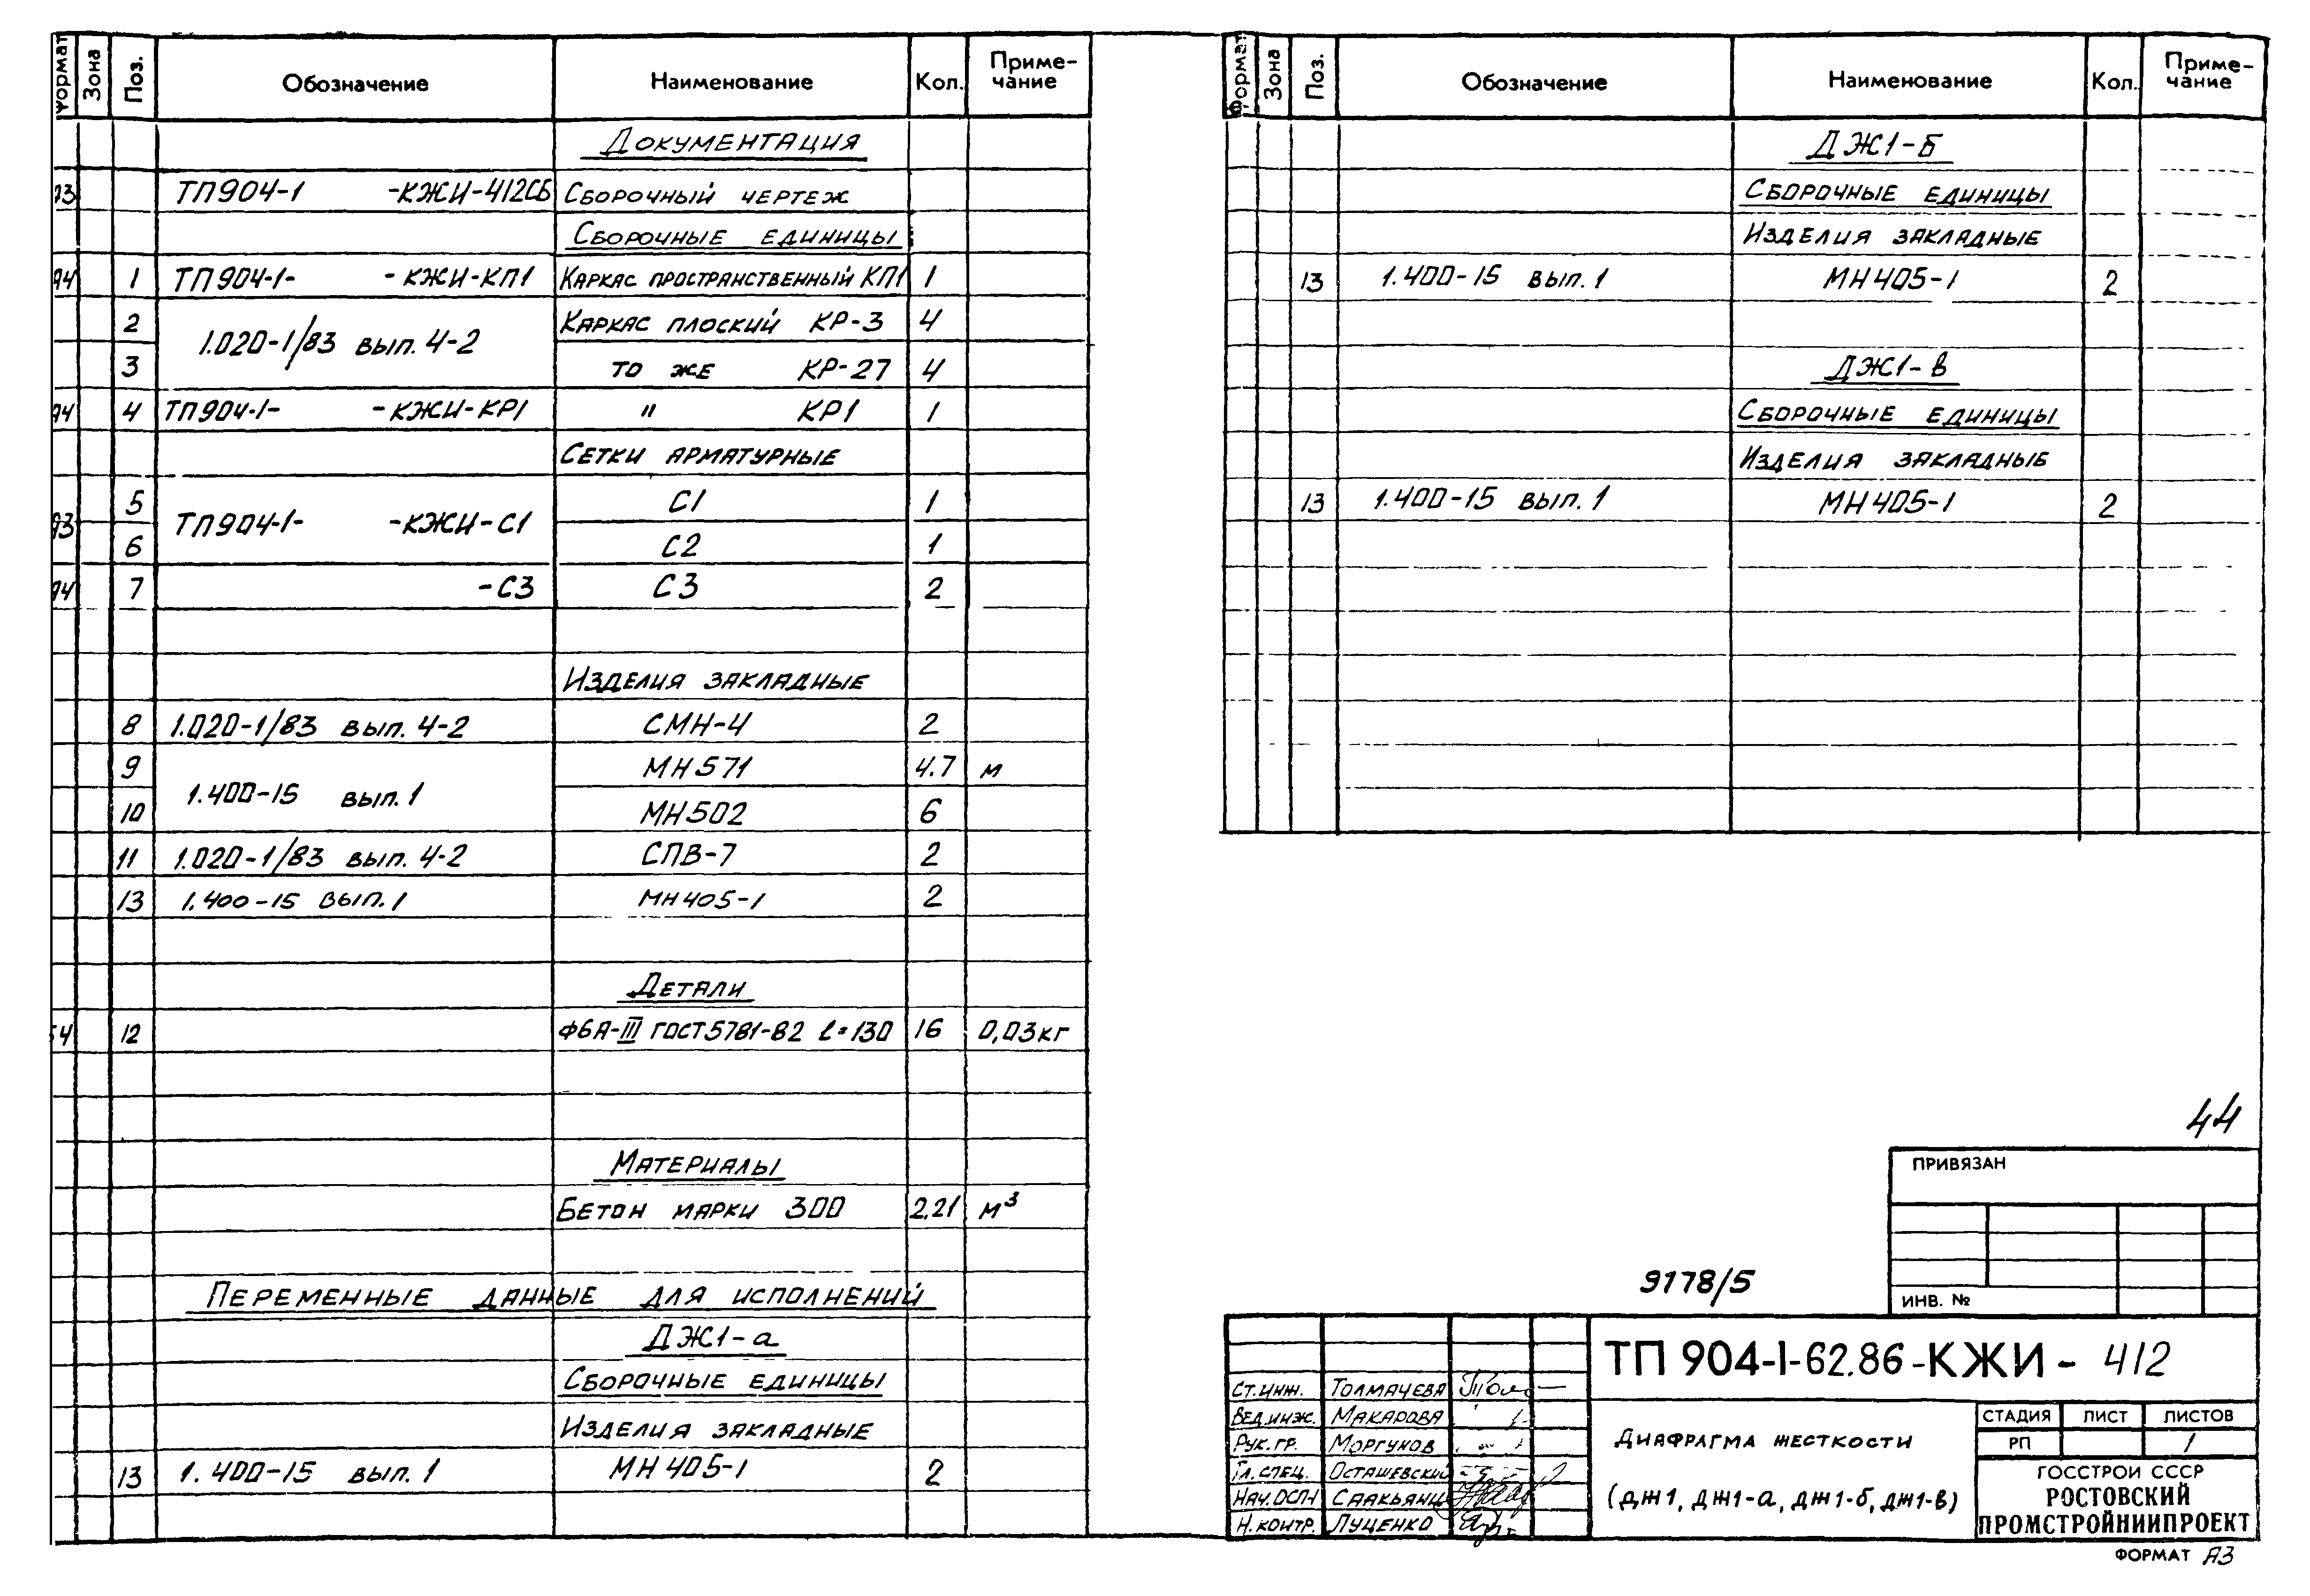 Формат Зона Поз. Обозначение Наименование Кол. Приме-чание
Документация
А3 ТП904-1 -КЖИ-412СБ Сборочный чертеж
Сборочные единицы
А4 1 ТП904-1- -КЖИ-КП1 Каркас пространственный КП1 1
2 1.020-1/83 вып. 4-2 Каркас плоский КР-3 4
3 то же КР-27 4
А4 4 ТП904-1- -КЖИ-КР1 " КР1 1
Сетки арматурные
А3 5 ТП904-1- -КЖИ-С1 С1 1
6 С2 1
А4 7 -С3 С3 2
Изделия закладные
8 1.020-1/83 вып. 4-2 СМН-4 2
9 1.400-15 вып. 1 МН571 4.7 м
10 МН502 6
11 1.020-1/83 вып. 4-2 СПВ-7 2
13 1.400-15 вып. 1 МН405-1 2
Детали
12 Ф6А-III ГОСТ5781-82 ℓ=130 16 0,03кг
Материалы
Бетон марки 300 2.21 м³
Переменные данные для исполнений
ДЖ1-а
Сборочные единицы
Изделия закладные
13 1.400-15 вып. 1 МН405-1 2
Формат Зона Поз. Обозначение Наименование Кол. Приме-чание
ДЖ1-б
Сборочные единицы
Изделия закладные
13 1.400-15 вып. 1 МН405-1 2
ДЖ1-в
Сборочные единицы
Изделия закладные
13 1.400-15 вып. 1 МН405-1 2
44
ПРИВЯЗАН
ИНВ. №
9178/5
ТП 904-1-62.86-КЖИ- 412
Ст.инж. Толмачева
Вед.инж. Макарова
Рук.гр. Моргунов
Гл.спец. Осташевский
Нач.ОСП-1 Саакьянц
Н.контр. Луценко
Диафрагма жесткости
(ДЖ1, ДЖ1-а, ДЖ1-б, ДЖ1-в)
СТАДИЯ ЛИСТ ЛИСТОВ
РП 1
ГОССТРОЙ СССР
РОСТОВСКИЙ
ПРОМСТРОЙНИИПРОЕКТ
ФОРМАТ А3